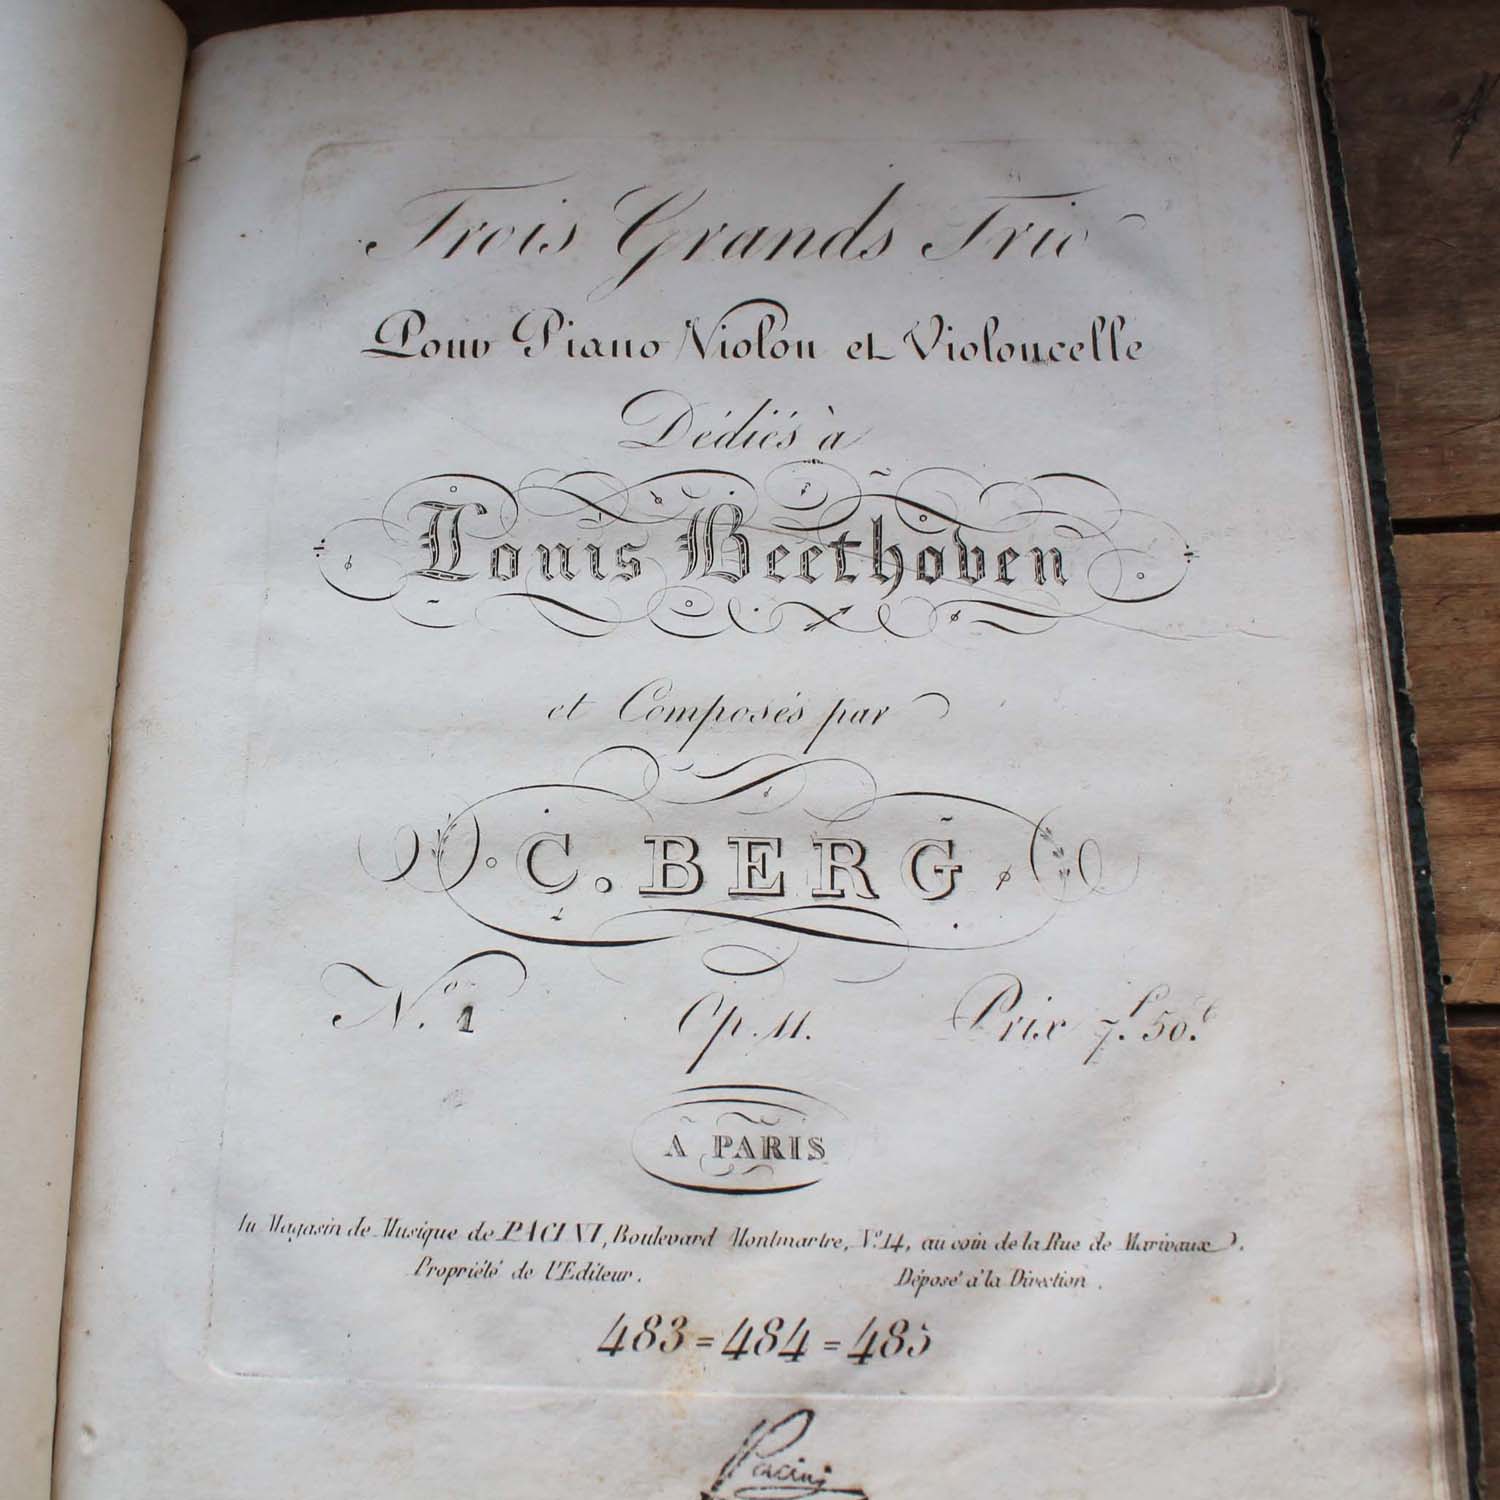 Trois Grands Trio
Pour Piano Violon et Violoncelle
Dédiés à
Louis Beethoven
et Composés par
C. BERG
N.º 1 Op. 11. Prix 7.f 50.c
A PARIS
Au Magasin de Musique de PACINI, Boulevard Montmartre, Nº 14, au coin de la Rue de Marivaux.
Propriété de l'Editeur. Déposé à la Direction.
483 = 484 = 485
Pacini